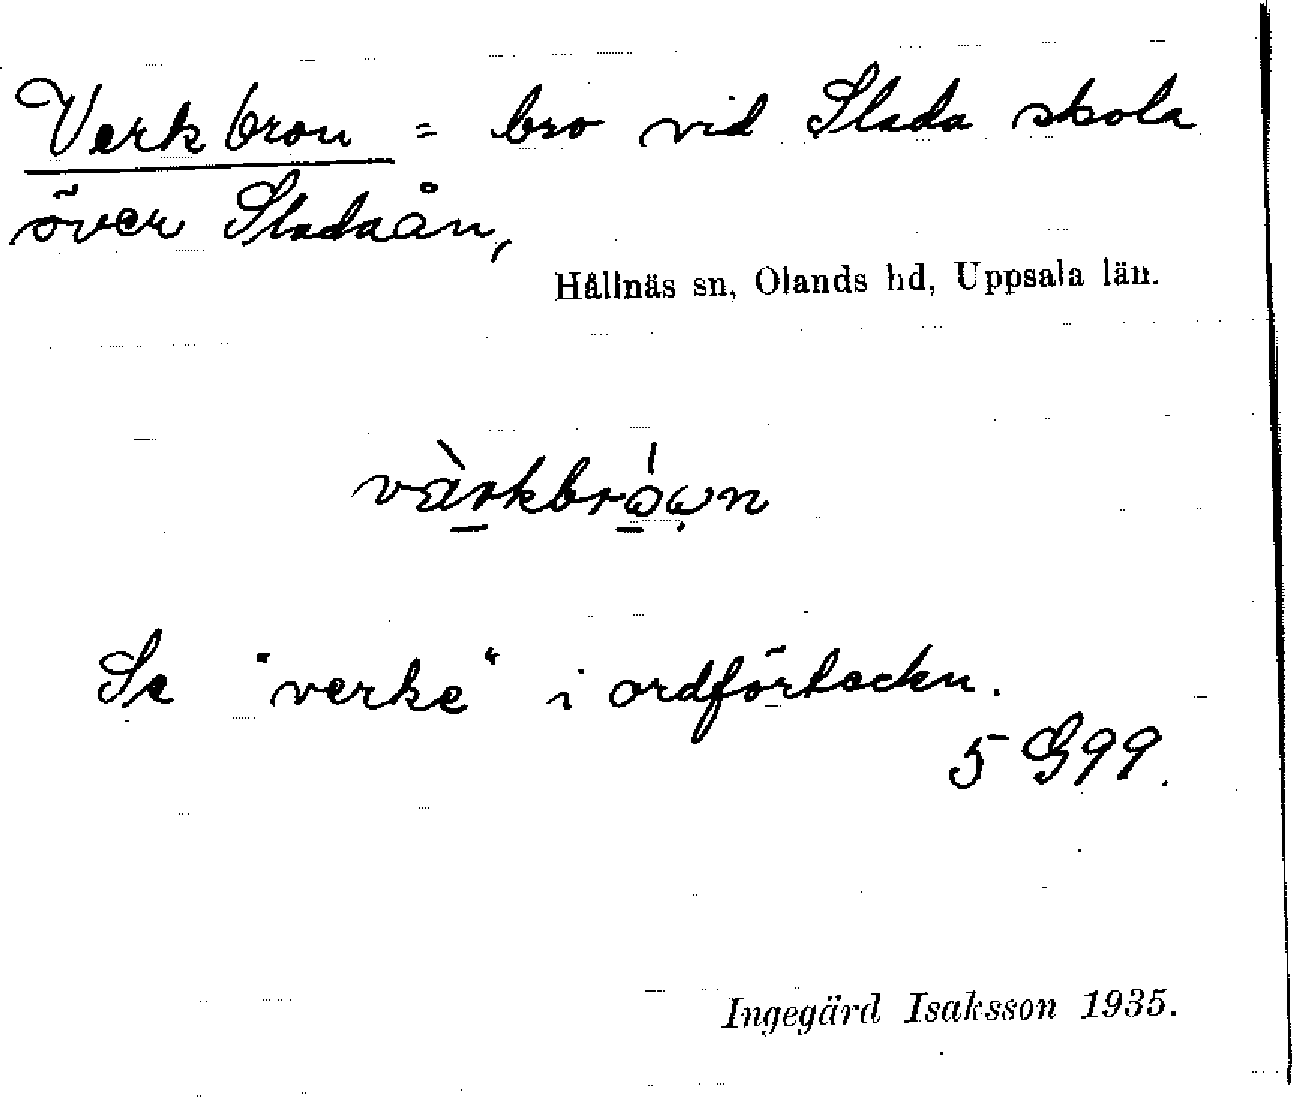 Verkbron = bro vid Slada skola
över Sladaån,
Hållnäs sn, Olands hd, Uppsala län.
vàrkbrówn
Se "verke" i ordförteckn.
5 G99.
Ingegärd Isaksson 1935.